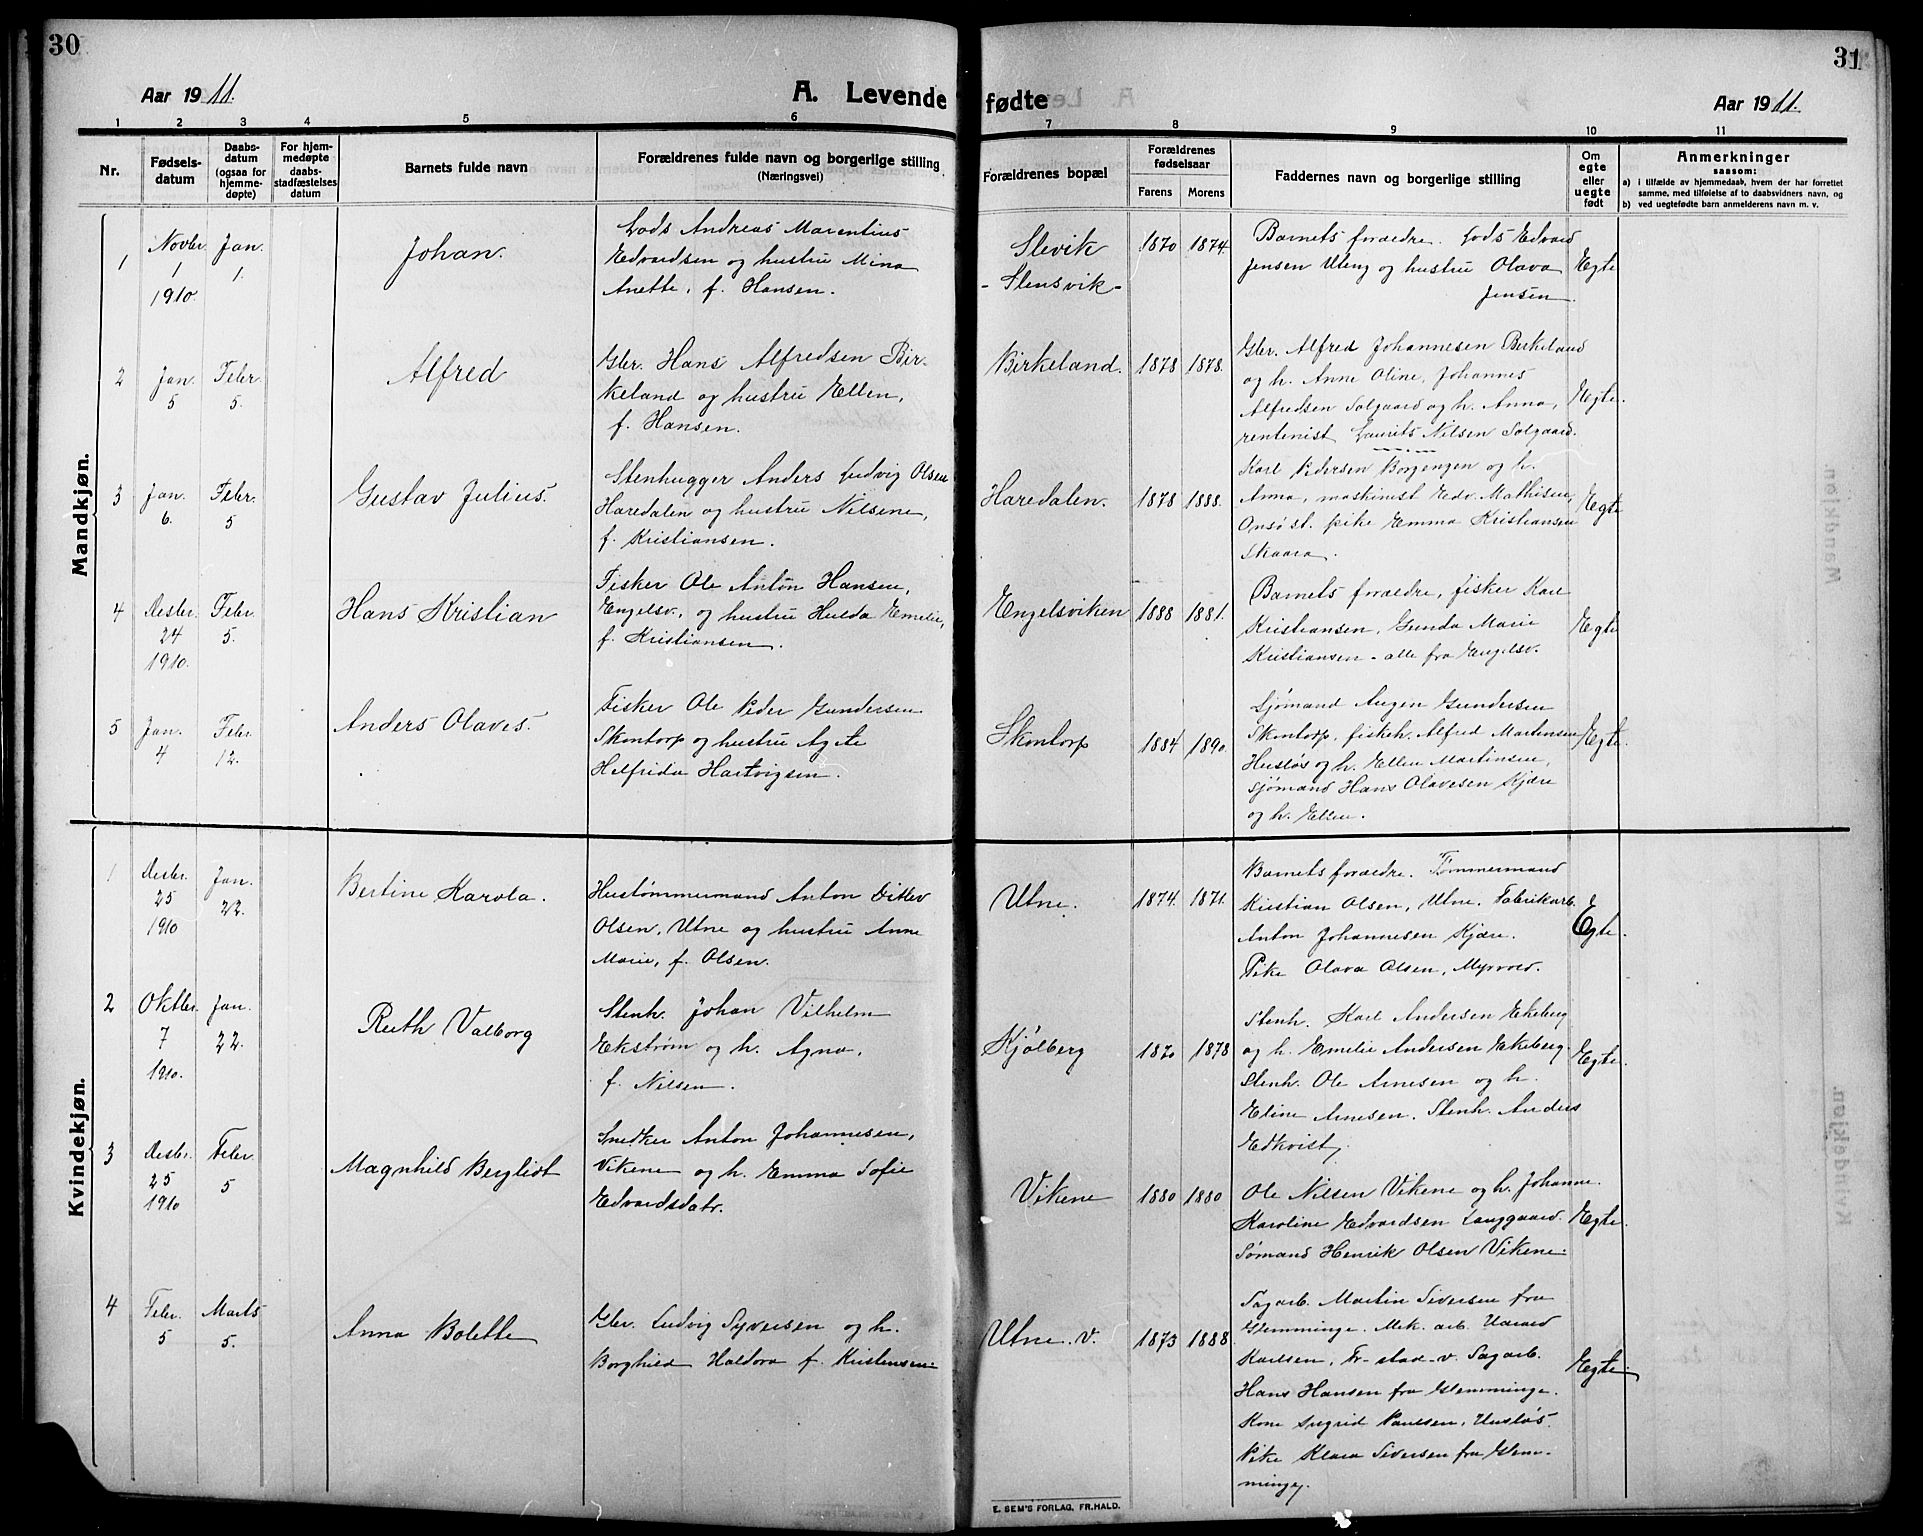 30
31
Aar 1911.
A. Levende fødte
Aar 1911.
1 2 3 4 5 6 7 8 9 10 11
Nr.
Fødsels-
datum
Daabs-
datum
(ogsaa for
hjemme-
døpte)
For hjem-
medøpte
daabs-
stadfæstelses
datum
Barnets fulde navn
Forældrenes fulde navn og borgerlige stilling
(Næringsvei)
Forældrenes bopæl
Forældrenes
fødselsaar
Farens Morens
Faddernes navn og borgerlige stilling
Om
egte
eller
uegte
født
Anmerkninger
saasom:
a) i tilfælde av hjemmedaab, hvem der har forrettet
samme, med tilføielse af to daabsvidners navn, og
b) ved uegtefødte barn anmelderens navn m. v.
Mandkjøn.
1
Novbr.
1
1910.
Jan.
1.
Johan.
Lods Andreas Marentius
Edvardsen og hustru Mina
Anette, f. Hansen.
Slevik
- Slensvik -
1870 1874.
Barnets forældre. Lods Edvard
Jensen Uteng og hustru Olava
Jensen.
Egte
2
Jan.
5
Febr.
5.
Alfred
Gbr. Hans Alfredsen Bir-
keland og hustru Ellen,
f. Hansen.
Birkeland.
1878 1878.
Gbr. Alfred Johannesen Birkeland
og h. Anne Oline, Johannes
Alfredsen Solgaard og h. Anna,
rentenist Laurits Nilsen Solgaard.
Egte.
3
Jan.
6.
Febr.
5
Gustav Julius.
Stenhugger Anders Ludvig Olsen
Haredalen og hustru Nilsene,
f. Kristiansen.
Haredalen.
1878 1888.
Karl Pedersen Borgengen og h.
Anna, maskinist Edv. Mathisen,
Onsø st. pike Emma Kristiansen
Skaara.
Egte
4
Desbr.
24
1910.
Febr.
5.
Hans Kristian
Fisker Ole Anton Hansen,
Engelsv., og hustru Hulda Emelie,
f. Kristiansen.
Engelsviken
1888 1881.
Barnets forældre, fisker Karl
Kristiansen, Gunda Marie
Kristiansen - alle fra Engelsv.
Egte
5
Jan.
4
Febr.
12.
Anders Olaves.
Fisker Ole Peder Gundersen
Skontorp og hustru Agte
Helfrida Hartvigsen.
Skontorp
1884 1890.
Sjømand Augen Gundersen
Skontorp, fiskeh. Alfred Martinsen
Husløs og h. Ellen Martinsen,
sjømand Hans Olavesen Kjære
og h. Ellen.
Egte.
Kvindekjøn.
1
Desbr.
25
1910
Jan.
22.
Bertine Karola.
Hustømmermand Anton Ditlev
Olsen, Utne og hustru Anne
Marie, f. Olsen.
Utne.
1874. 1871.
Barnets forældre. Tømmermand
Kristian Olsen, Utne. Fabrikarb.
Anton Johannesen Kjære.
Pike Olava Olsen, Myrvold.
Egte.
2
Oktbr.
7
1910.
Jan.
22.
Ruth Valborg
Stenh. Johan Vilhelm
Ekstrøm og h. Agna,
f. Nilsen.
Kjølberg
1870 1878
Stenh. Karl Andersen Ekeberg
og h. Emelie Andersen Ekeberg.
Stenh. Ole Arnesen og h.
Eline Arnesen. Stenh. Anders
Edkvist.
Egte.
3
Desbr.
25
1910
Febr.
5
Magnhild Bergliot
Snedker Anton Johannesen,
Vikene og h. Emma Sofie
Edvardsdatr.
Vikene
1880 1880
Ole Nilsen Vikene og h. Johanne.
Karoline Edvardsen Langgaard.
Sømand Henrik Olsen Vikene.
Egte.
4
Febr.
5
Marts
5.
Anna Bolette
Gbr. Ludvig Syversen og h.
Borghild Haldora f. Kristensen.
Utne. v.
1873 1888
Sagarb. Martin Siversen fra
Glemminge. Mek. arb.
Karlsen, Fr-stad-v. Sagarb.
Hans Hansen fra Glemminge.
Kone Sigrid Paulsen, Husløs.
Pike Klara Siversen fra Glem-
minge.
Egte.
E. SEM'S FORLAG, FR.HALD.